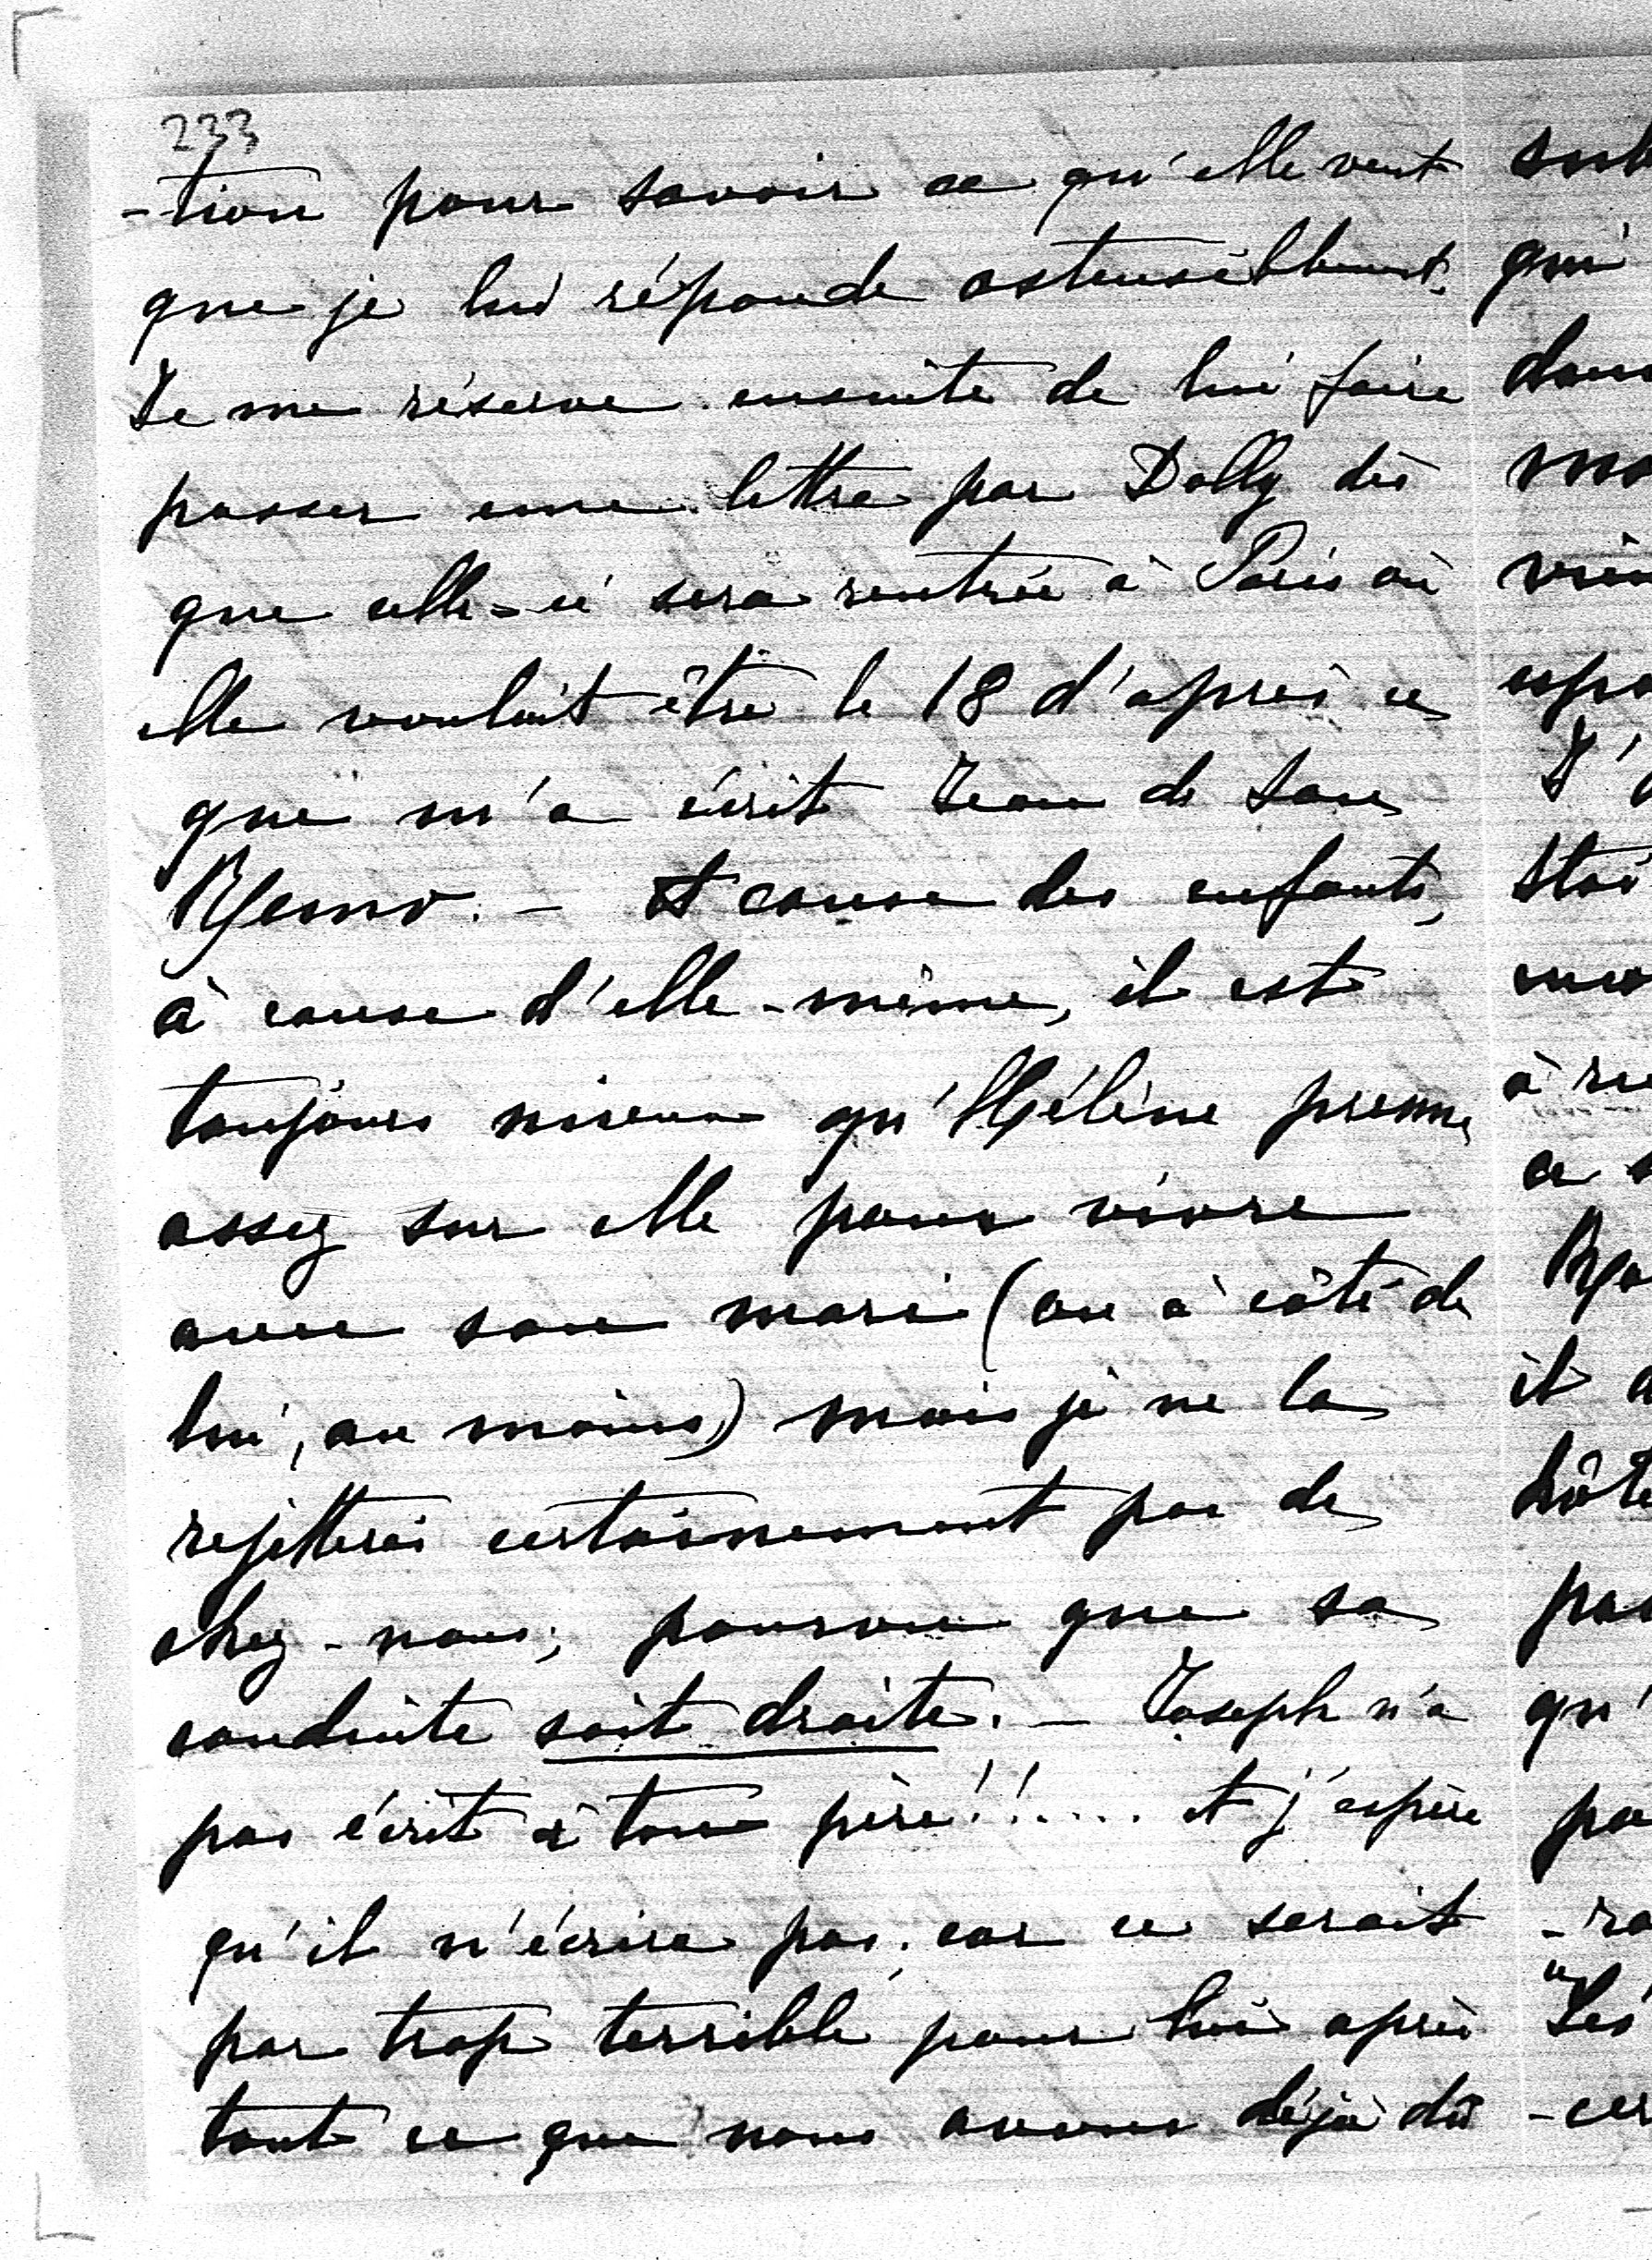 233
-tion pour savoir ce qu'elle veut
que je lui réponde ostensiblement.
Je me réserve ensuite de lui faire
passer une lettre par Dolly dès
que celle-ci sera rentrée à Paris où
elle voulait être le 18 d'après ce
que m'a écrit Jean de San
- A cause des enfants,
à cause d'elle-même, il est
toujours mieux qu'Hélène prenne
assez sur elle pour vivre
avec son mari (ou à côté de
lui, au moins) mais je ne la
rejetterai certainement pas de
chez-nous, pourvu que sa
conduite soit droite. - Joseph n'a
pas écrit à ton père!!.... et j'espère
qu'il n'écrira pas, car ce serait
par trop terrible pour lui après
tout ce que nous avons déjà dû
qui
J'
à
ce
il
qu'
-ra
-cer